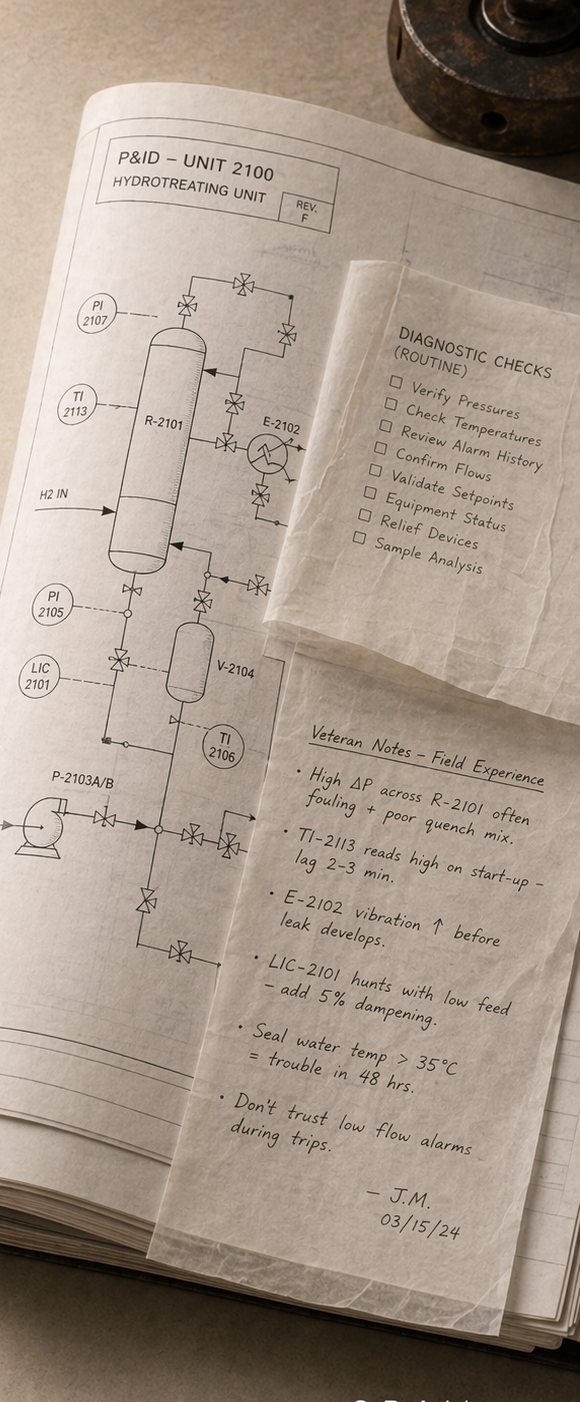 P&ID – UNIT 2100
HYDROTREATING UNIT
REV.
F
PI
2107
TI
2113
R-2101
E-2102
H2 IN
PI
2105
LIC
2101
V-2104
TI
2106
P-2103A/B
DIAGNOSTIC CHECKS
(ROUTINE)
Verify Pressures
Check Temperatures
Review Alarm History
Confirm Flows
Validate Setpoints
Equipment Status
Relief Devices
Sample Analysis
Veteran Notes – Field Experience
• High ΔP across R-2101 often
fouling + poor quench mix.
• TI-2113 reads high on start-up –
lag 2-3 min.
• E-2102 vibration ↑ before
leak develops.
• LIC-2101 hunts with low feed
– add 5% dampening.
• Seal water temp > 35°C
= trouble in 48 hrs.
• Don't trust low flow alarms
during trips.
– J.M.
03/15/24